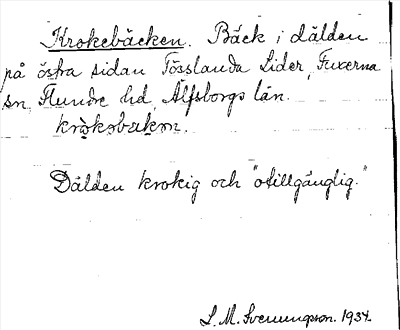 Krokebäcken. Bäck i dälden
på östra sidan Tösslanda Lider, Fuxerna
sn, Flundre hd, Älfsborgs län.
Dälden krokig och "otillgänglig."
L. M. Svenungsson. 1934.